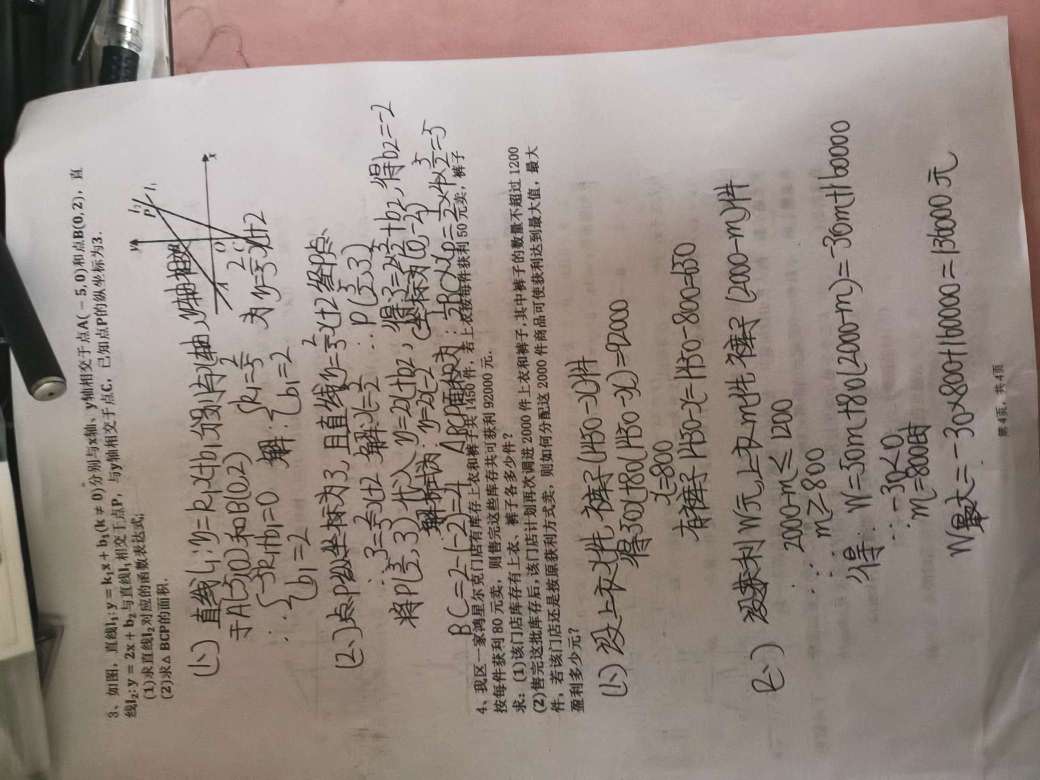 3、如图，直线l₁:y = k₁x + b₁(k ≠ 0)分别与x轴、y轴相交于点A(−5,0)和点B(0,2)，直
线l₂:y = 2x + b₂与直线l₁相交于点P，与y轴相交于点C，已知点P的纵坐标为3.
(1)求直线l₂对应的函数表达式；
(2)求△BCP的面积.
y
l₂
P
l₁
B
A
O
x
C
(1、) 直线l₁:y=k₁x+b₁分别与x轴、y轴相交
于A(-5,0)和B(0,2)
∴{-5k₁+b₁=0
b₁=2
解:{k₁=2/5
b₁=2
为y=2/5x+2
(2、)点P纵坐标为3,且直线y=2/5x+2经P点
∴3=2/5x+2 解x=5/2 ∴P(5/2,3)
将P(5/2,3)代入y=2x+b₂,得3=2×5/2+b₂,得b₂=-2
解析式为:y=2x-2 C坐标为(0,-2)
BC=2-(-2)=4 △BCP面积为:1/2BC·xp=1/2×4×5/2=5
4、我区一家鸿星尔克门店有库存上衣和裤子共1450件，若上衣按每件获利50元卖，裤子
按每件获利80元卖，则售完这些库存共可获利92000元.
求：(1)该门店库存有上衣、裤子各多少件？
(2)售完这批库存后,该门店计划再次调进2000件上衣和裤子,其中裤子的数量不超过1200
件，若该门店还是按原获利方式卖，则如何分配这2000件商品可使获利达到最大值，最大
盈利多少元？
(1、) 设上衣x件,裤子(1450-x)件
得50x+80(1450-x)=92000
x=800
有裤子1450-x=1450-800=650
(2、) 设获利W元,上衣m件,裤子(2000-m)件
∴2000-m≤1200
m≥800
得: W=50m+80(2000-m)=-30m+160000
∵-30<0
∴m=800时
W最大=-30×800+160000=136000元
第4页，共4页